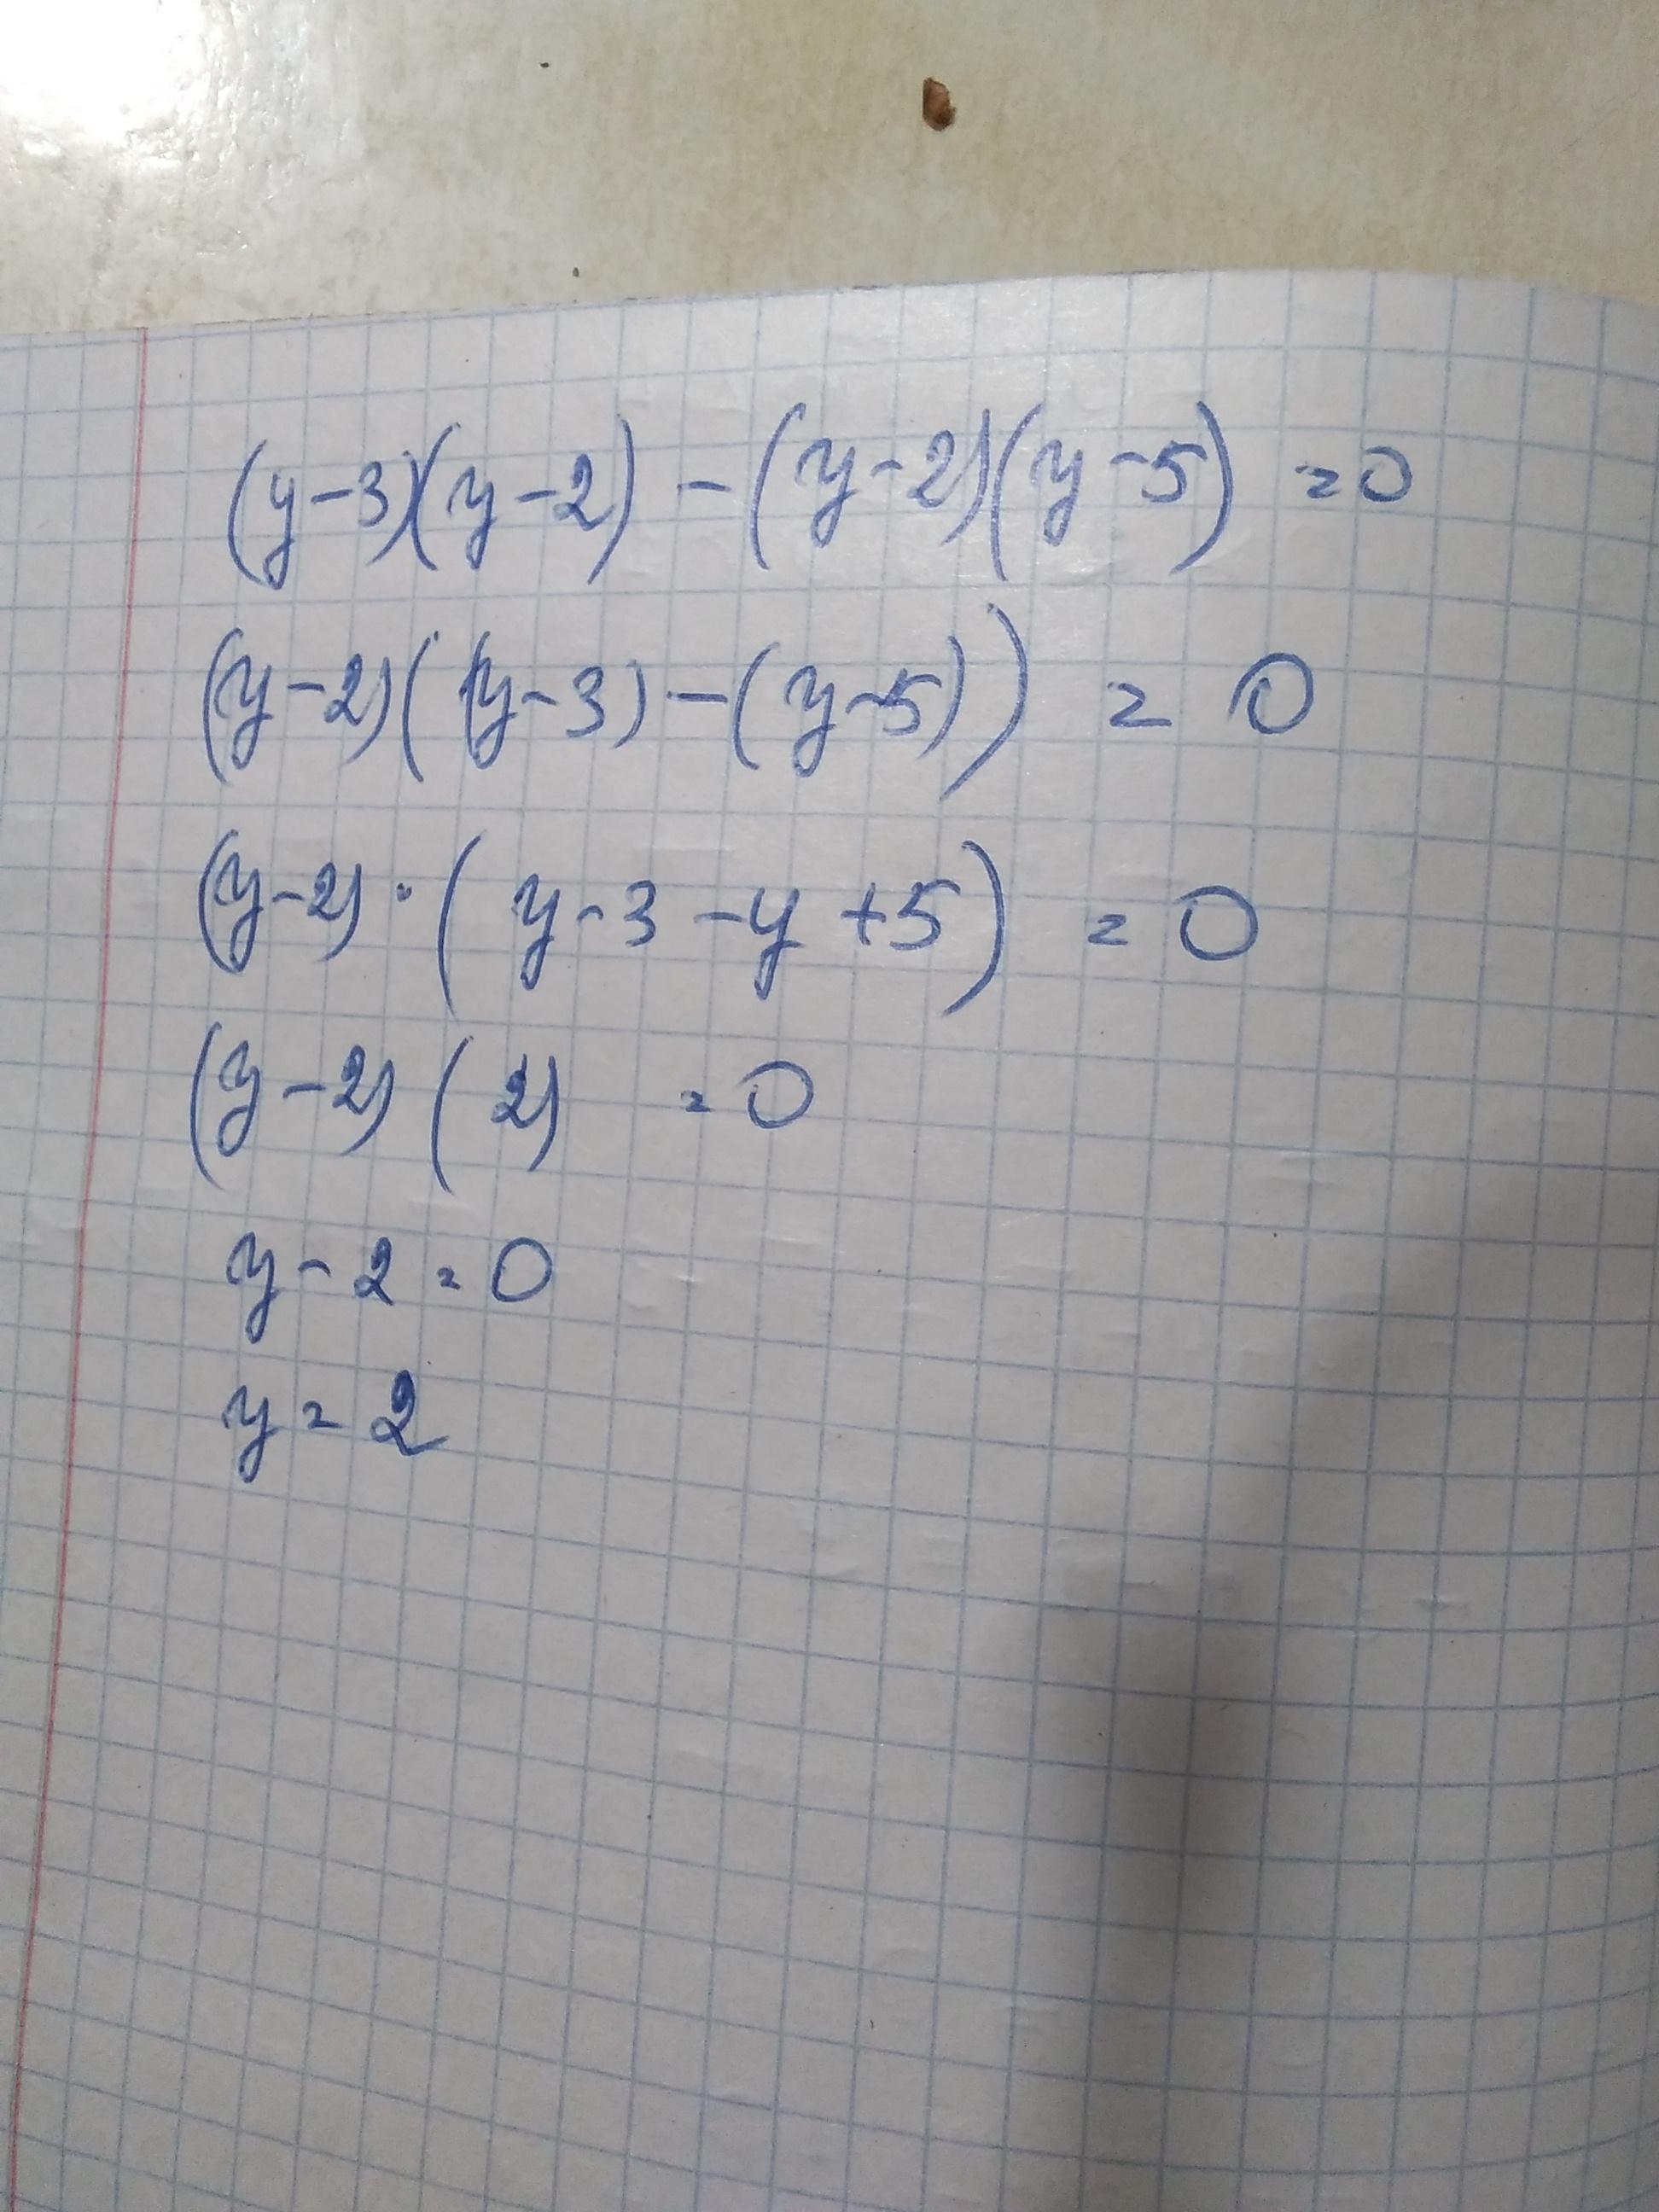 (y-3)(y-2) - (y-2)(y-5) = 0
(y-2)((y-3) - (y-5)) = 0
(y-2) · (y-3-y+5) = 0
(y-2)(2) = 0
y-2 = 0
y = 2